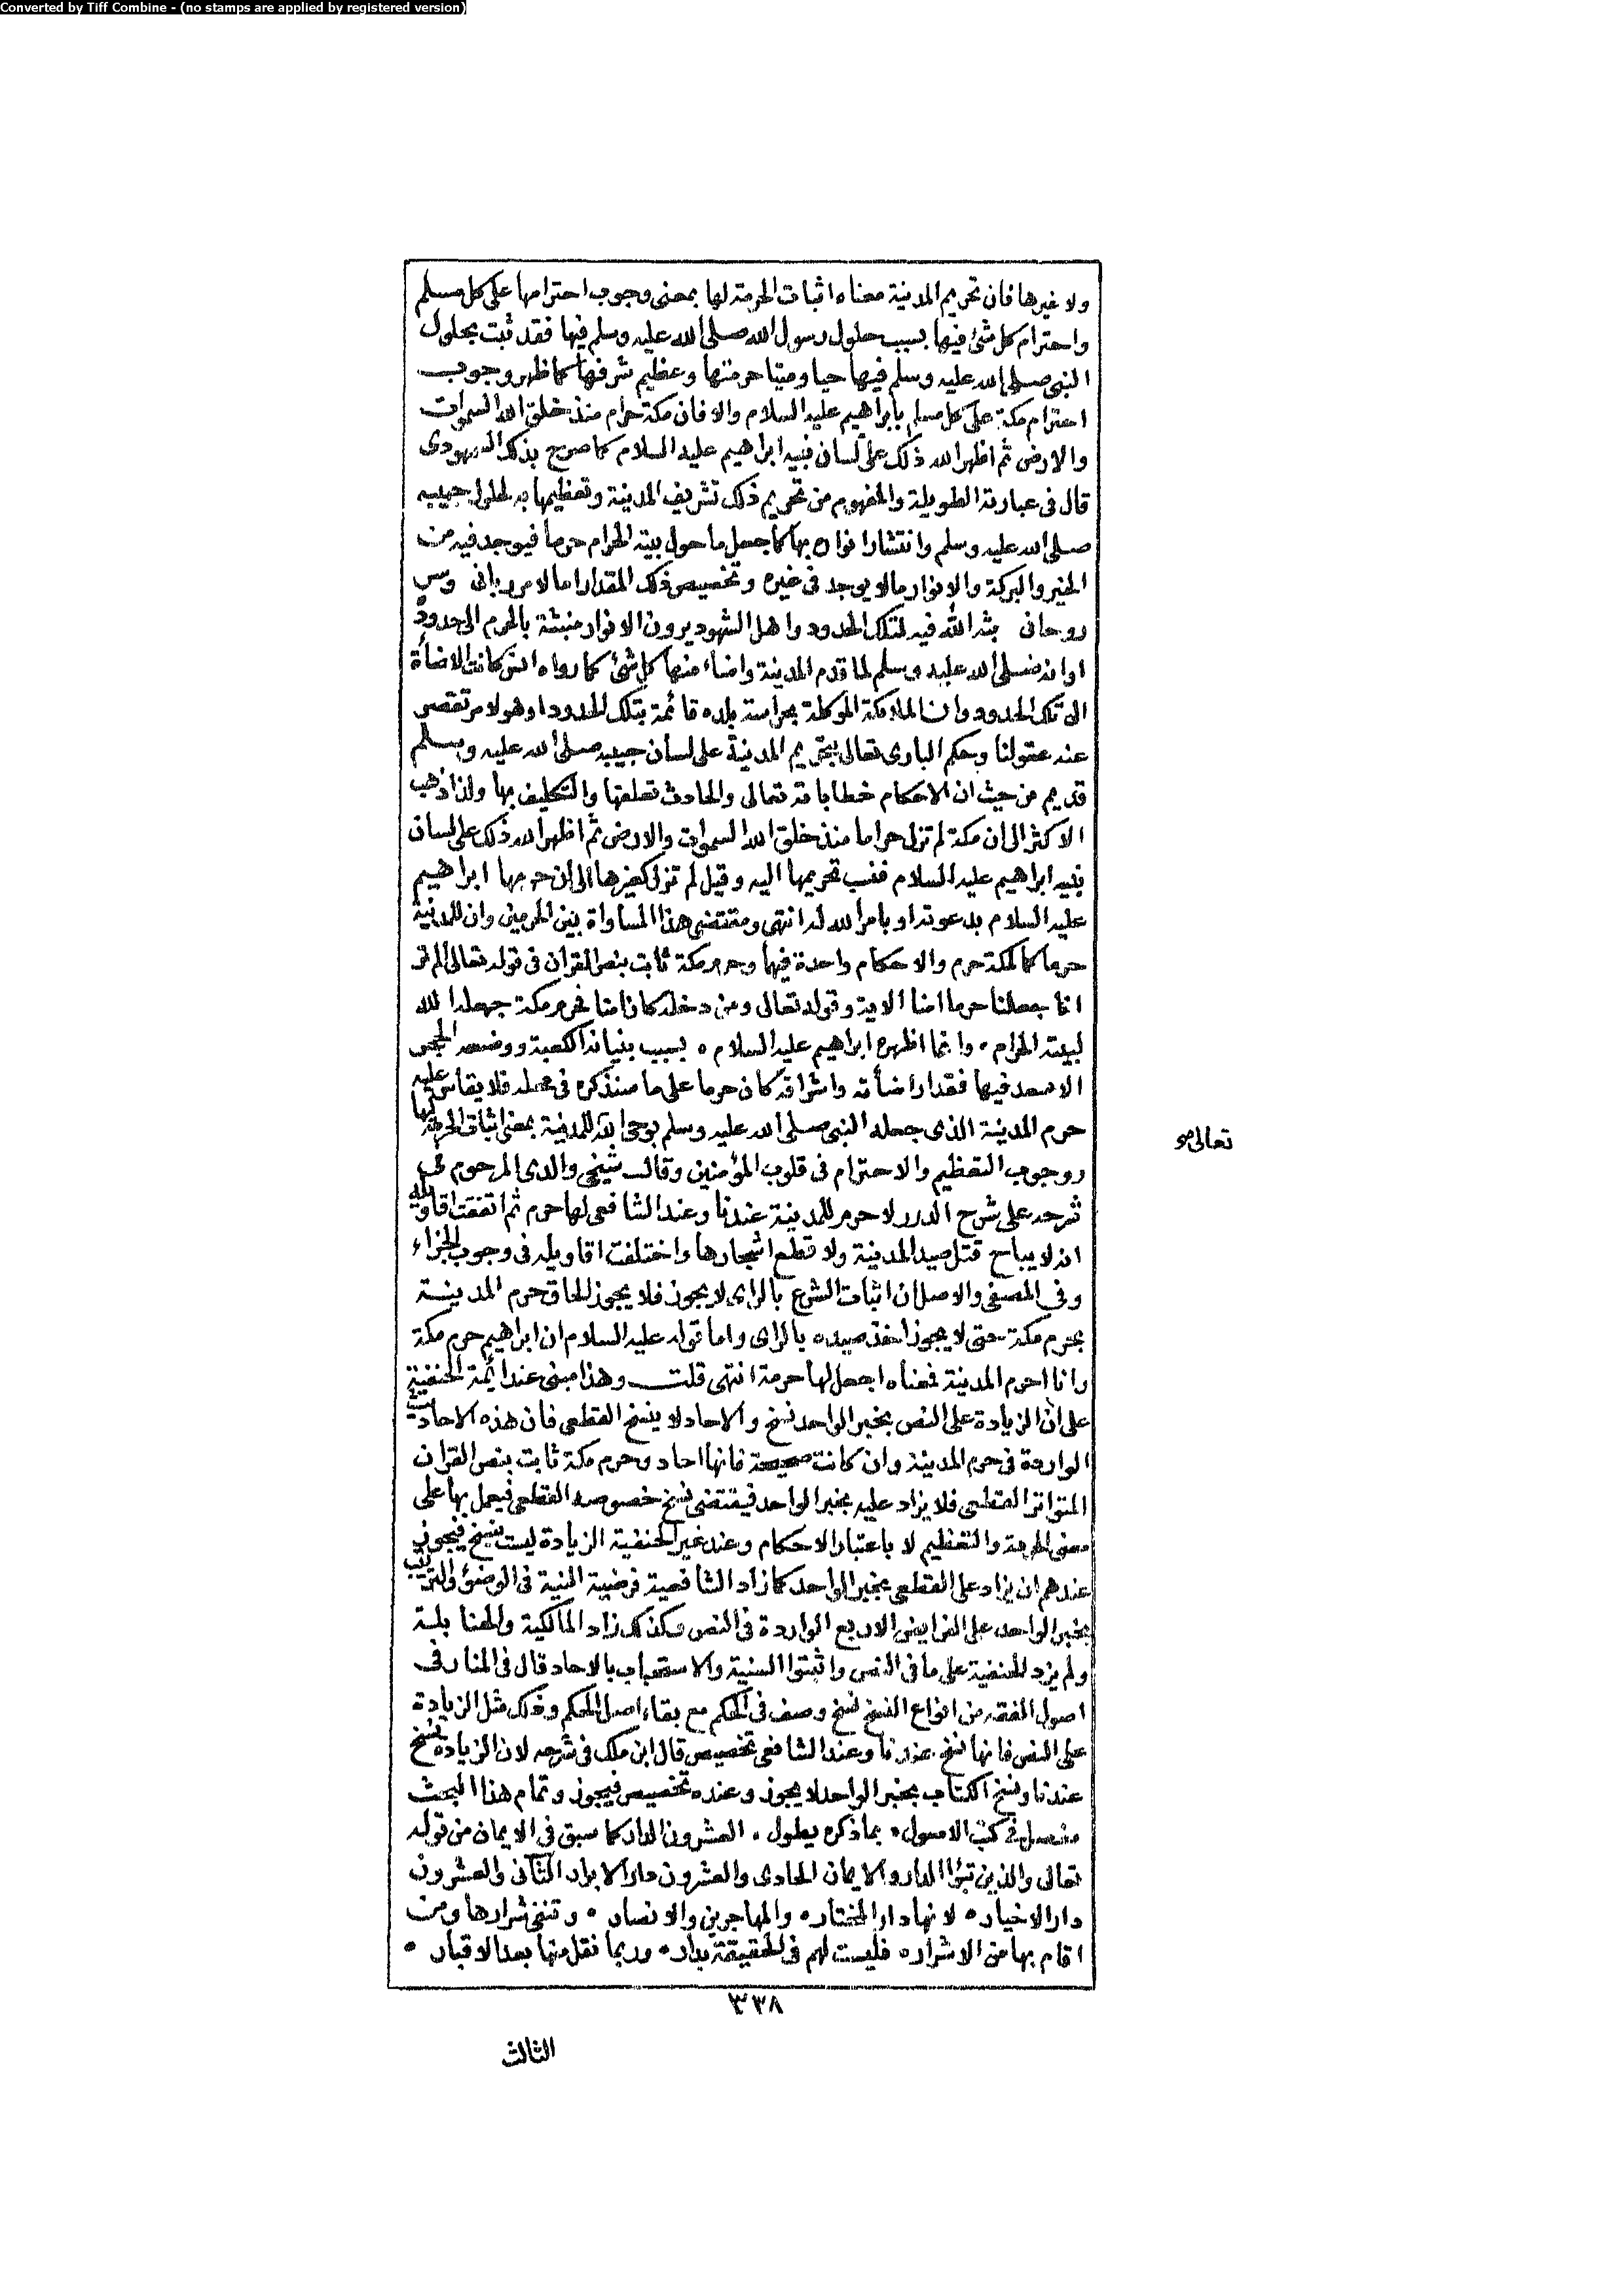 Converted by Tiff Combine - (no stamps are applied by registered version)
ولا غيرها فان تحريم المدينة معناه اثبات الحرمة لها بمعنى وجوب احترامها على كل مسلم
واحترام كل شئ فيها بسبب حلول رسول الله صلى الله عليه وسلم فيها فقد ثبت بحلول
النبي صلى الله عليه وسلم فيها حيا وميتا حرمتها وعظيم شرفها كما ظهر وجوب
احترام مكة على كل مسلم بابراهيم عليه السلام والا فان مكة حرام منذ خلق الله السموات
والارض ثم اظهر الله ذلك على لسان نبيه ابراهيم عليه السلام كما صرح بذلك السمهودى
قال فى عبارته الطويلة والمفهوم من تحريم ذلك تشريف المدينة وتعظيمها به لحلول حبيبه
صلى الله عليه وسلم وانتشار انواره بها كما جعل ما حول بيته الحرام حرما فيوجد فيه من
الخير والبركة والانوار ما لا يوجد فى غيره وتخصيص ذلك المقدار اما لامر ربانى وسر
روحانى بثه الله فيه لتلك الحدود واهل الشهود يرون الانوار منبثة بالحرم الى حدوده
او انه صلى الله عليه وسلم لما قدم المدينة واضاء منها كل شئ كما رواه انس كانت الاضأة
الى تلك الحدود وان الملائكة الموكلة بحراسة بلده قائمة بتلك الحدود او هو لامر تقصر
عند عقولنا وحكم البارى تعالى بتحريم المدينة على لسان حبيبه صلى الله عليه وسلم
قديم من حيث ان الاحكام خطاباته تعالى والحادث تعلقها والتكليف بها ولذا ذهب
الاكثر الى ان مكة لم تزل حراما منذ خلق الله السموات والارض ثم اظهر الله ذلك على لسان
نبيه ابراهيم عليه السلام فنسب تحريمها اليه وقيل لم تزل كغيرها الى ان حرمها ابراهيم
عليه السلام بدعوته او بامر الله له انتهى ومقتضى هذا المساواة بين الحرمين وان للمدينة
حرما كما لمكة حرم والاحكام واحدة فيهما وحرم مكة ثابت بنص القران فى قوله تعالى الم تر
انا جعلنا حرما امنا الاية وقوله تعالى ومن دخله كان امنا فحرم مكة جعله الله
لبيته الحرام ، وانما اظهره ابراهيم عليه السلام ، بسبب بنيانه الكعبة ووضعه الحجر
الاسعد فيها فقدار اضأته واشراقه كان حرما على ما سنذكره فى محله فلا يقاس عليه
حرم المدينة الذى جعله النبي صلى الله عليه وسلم بوحى الله للمدينة بمعنى اثبات الحرمة لها
تعالى صح
ووجوب التعظيم والاحترام فى قلوب المؤمنين وقال شيخى والدى المرحوم فى
شرحه على شرح الدرر لا حرم للمدينة عندنا وعند الشافعى لها حرم ثم اتفقت اقاويله
انه لا يباح قتل صيد المدينة ولا قطع اشجارها واختلفت اقاويله فى وجوب الجزاء
وفى المصفى والاصل ان اثبات الشرع بالراى لا يجوز فلا يجوز الحاق حرم المدينة
بحرم مكة حتى لا يجوز اخذ صيده بالراى واما قوله عليه السلام ان ابراهيم حرم مكة
وانا احرم المدينة فمعناه اجعل لها حرمة انتهى قلت وهذا مبنى عند ائمة الحنفية
على ان الزيادة على النص بخبر الواحد نسخ والاحاد لا ينسخ القطعى فان هذه الاحاديث
الواردة فى حرم المدينة وان كانت صحيحة فانها احاد وحرم مكة ثابت بنص القران
المتواتر القطعى فلا يزاد عليه بخبر الواحد فيقتضى نسخ خصوصه القطعى فيعمل بها على
معنى الحرمة والتعظيم لا باعتبار الاحكام وعند غير الحنفية الزيادة ليست بنسخ فيجوز
عندهم ان يزاد على القطعى بخبر الواحد كما زاد الشافعية فرضية النية فى الوضوء والترتيب
بخبر الواحد على الفرايض الاربع الواردة فى النص وكذلك زاد المالكية والحنابلة
ولم يزد الحنفية على ما فى النص واثبتوا السنية والاستحباب بالاحاد قال فى المنار فى
اصول الفقه من انواع النسخ نسخ وصف فى الحكم مع بقاء اصل الحكم وذلك مثل الزيادة
على النص فانها نسخ عندنا وعند الشافعى تخصيص قال ابن ملك فى شرحه لان الزيادة نسخ
عندنا ونسخ الكتاب بخبر الواحد لا يجوز وعنده تخصيص فيجوز وتمام هذا المبحث
مفصل فى كتب الاصول ، بما ذكره يطول ، العشرون الدار كما سبق فى الايمان من قوله
تعالى والذين تبؤا الدار والايمان الحادى والعشرون دار الابرار الثانى والعشرون
دار الاخيار ، لانها دار المختار ، والمهاجرين والانصار ، وتنفى شرارها ومن
اقام بها من الاشرار ، فليست لهم فى الحقيقة بدار ، وربما نقل منها بعد الاقبار ،
٣٣٨
الثالث